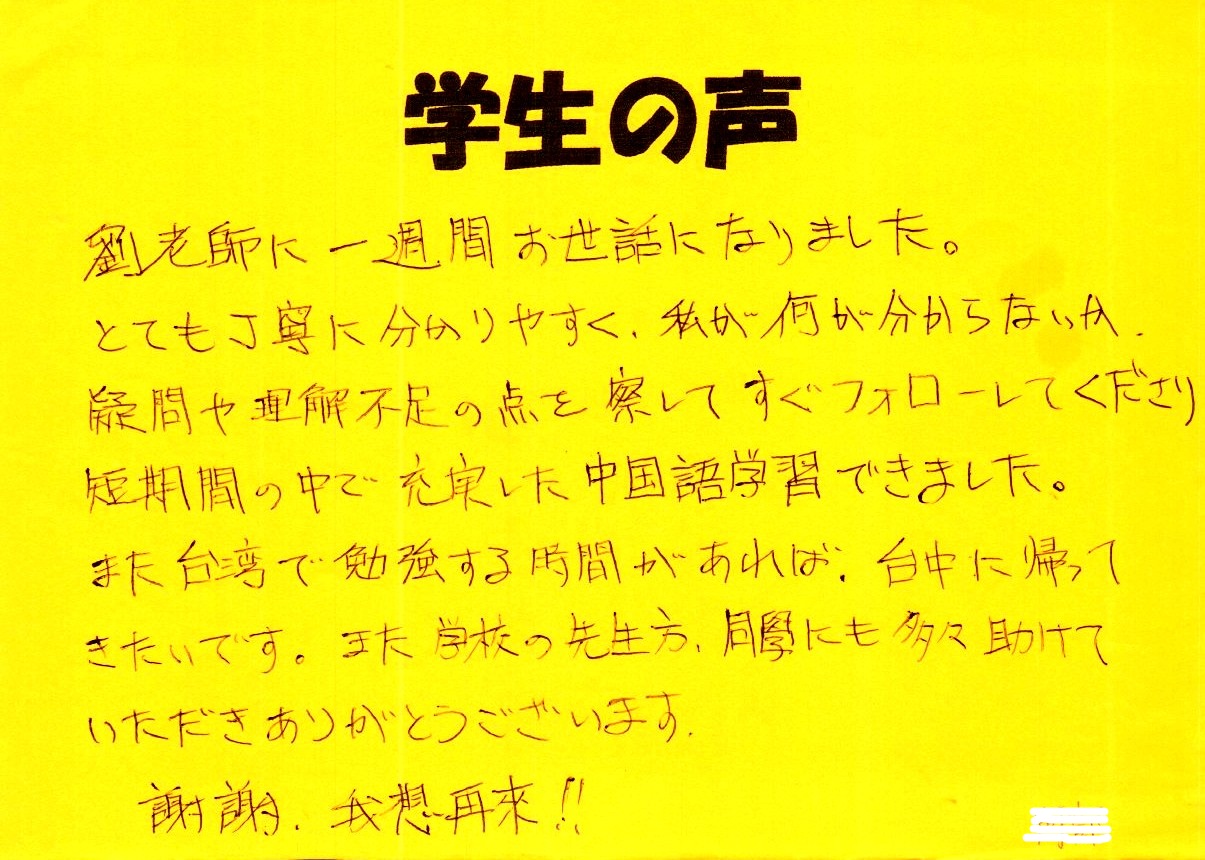 学生の声
劉老師に一週間お世話になりました。
とても丁寧に分かりやすく、私が何が分からないか、
疑問や理解不足の点を察してすぐフォローしてくださり
短期間の中で充実した中国語学習できました。
また台湾で勉強する時間があれば、台中に帰って
きたいです。また学校の先生方、同學にも多々助けて
いただきありがとうございます.
謝謝、我想再來!!